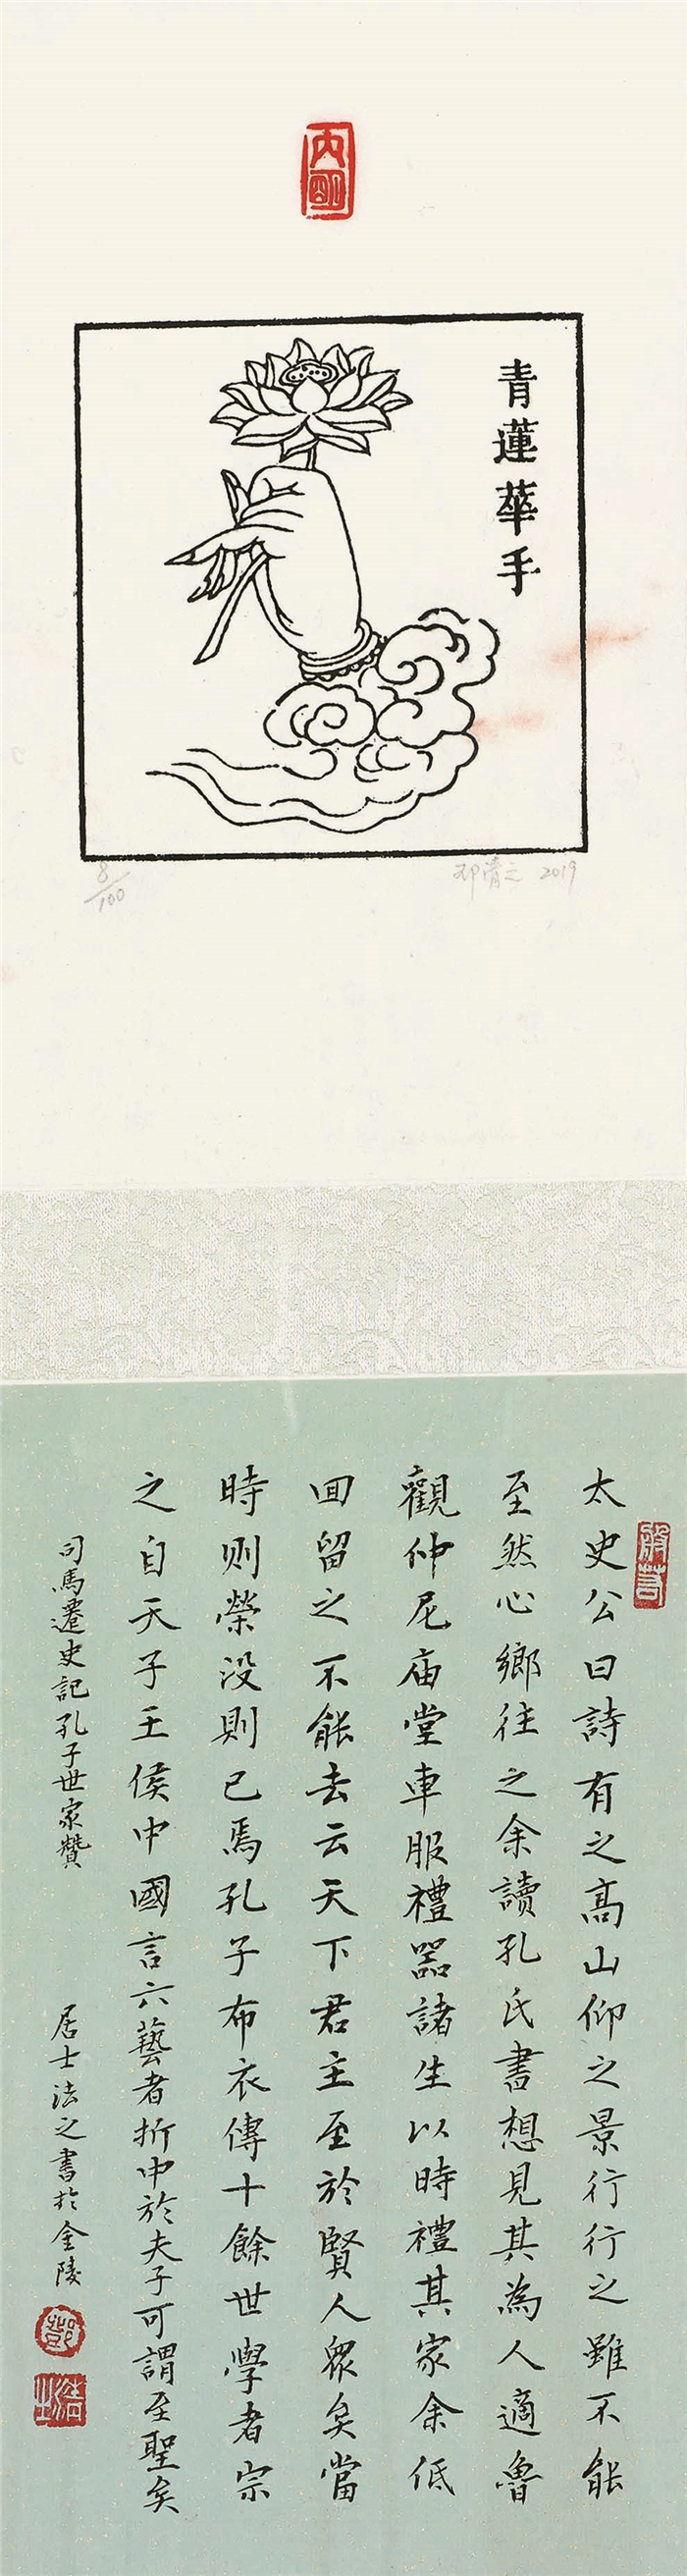 内明
青蓮華手
8/100
2019
太史公曰詩有之高山仰之景行行之雖不能
至然心鄉往之余讀孔氏書想見其為人適魯
觀仲尼庙堂車服禮器諸生以時禮其家余低
囬留之不能去云天下君主至於賢人眾矣當
時則榮没則已焉孔子布衣傳十餘世學者宗
之自天子王侯中國言六藝者折中於夫子可謂至聖矣
司馬遷史記孔子世家贊
居士法之書於金陵
鄧